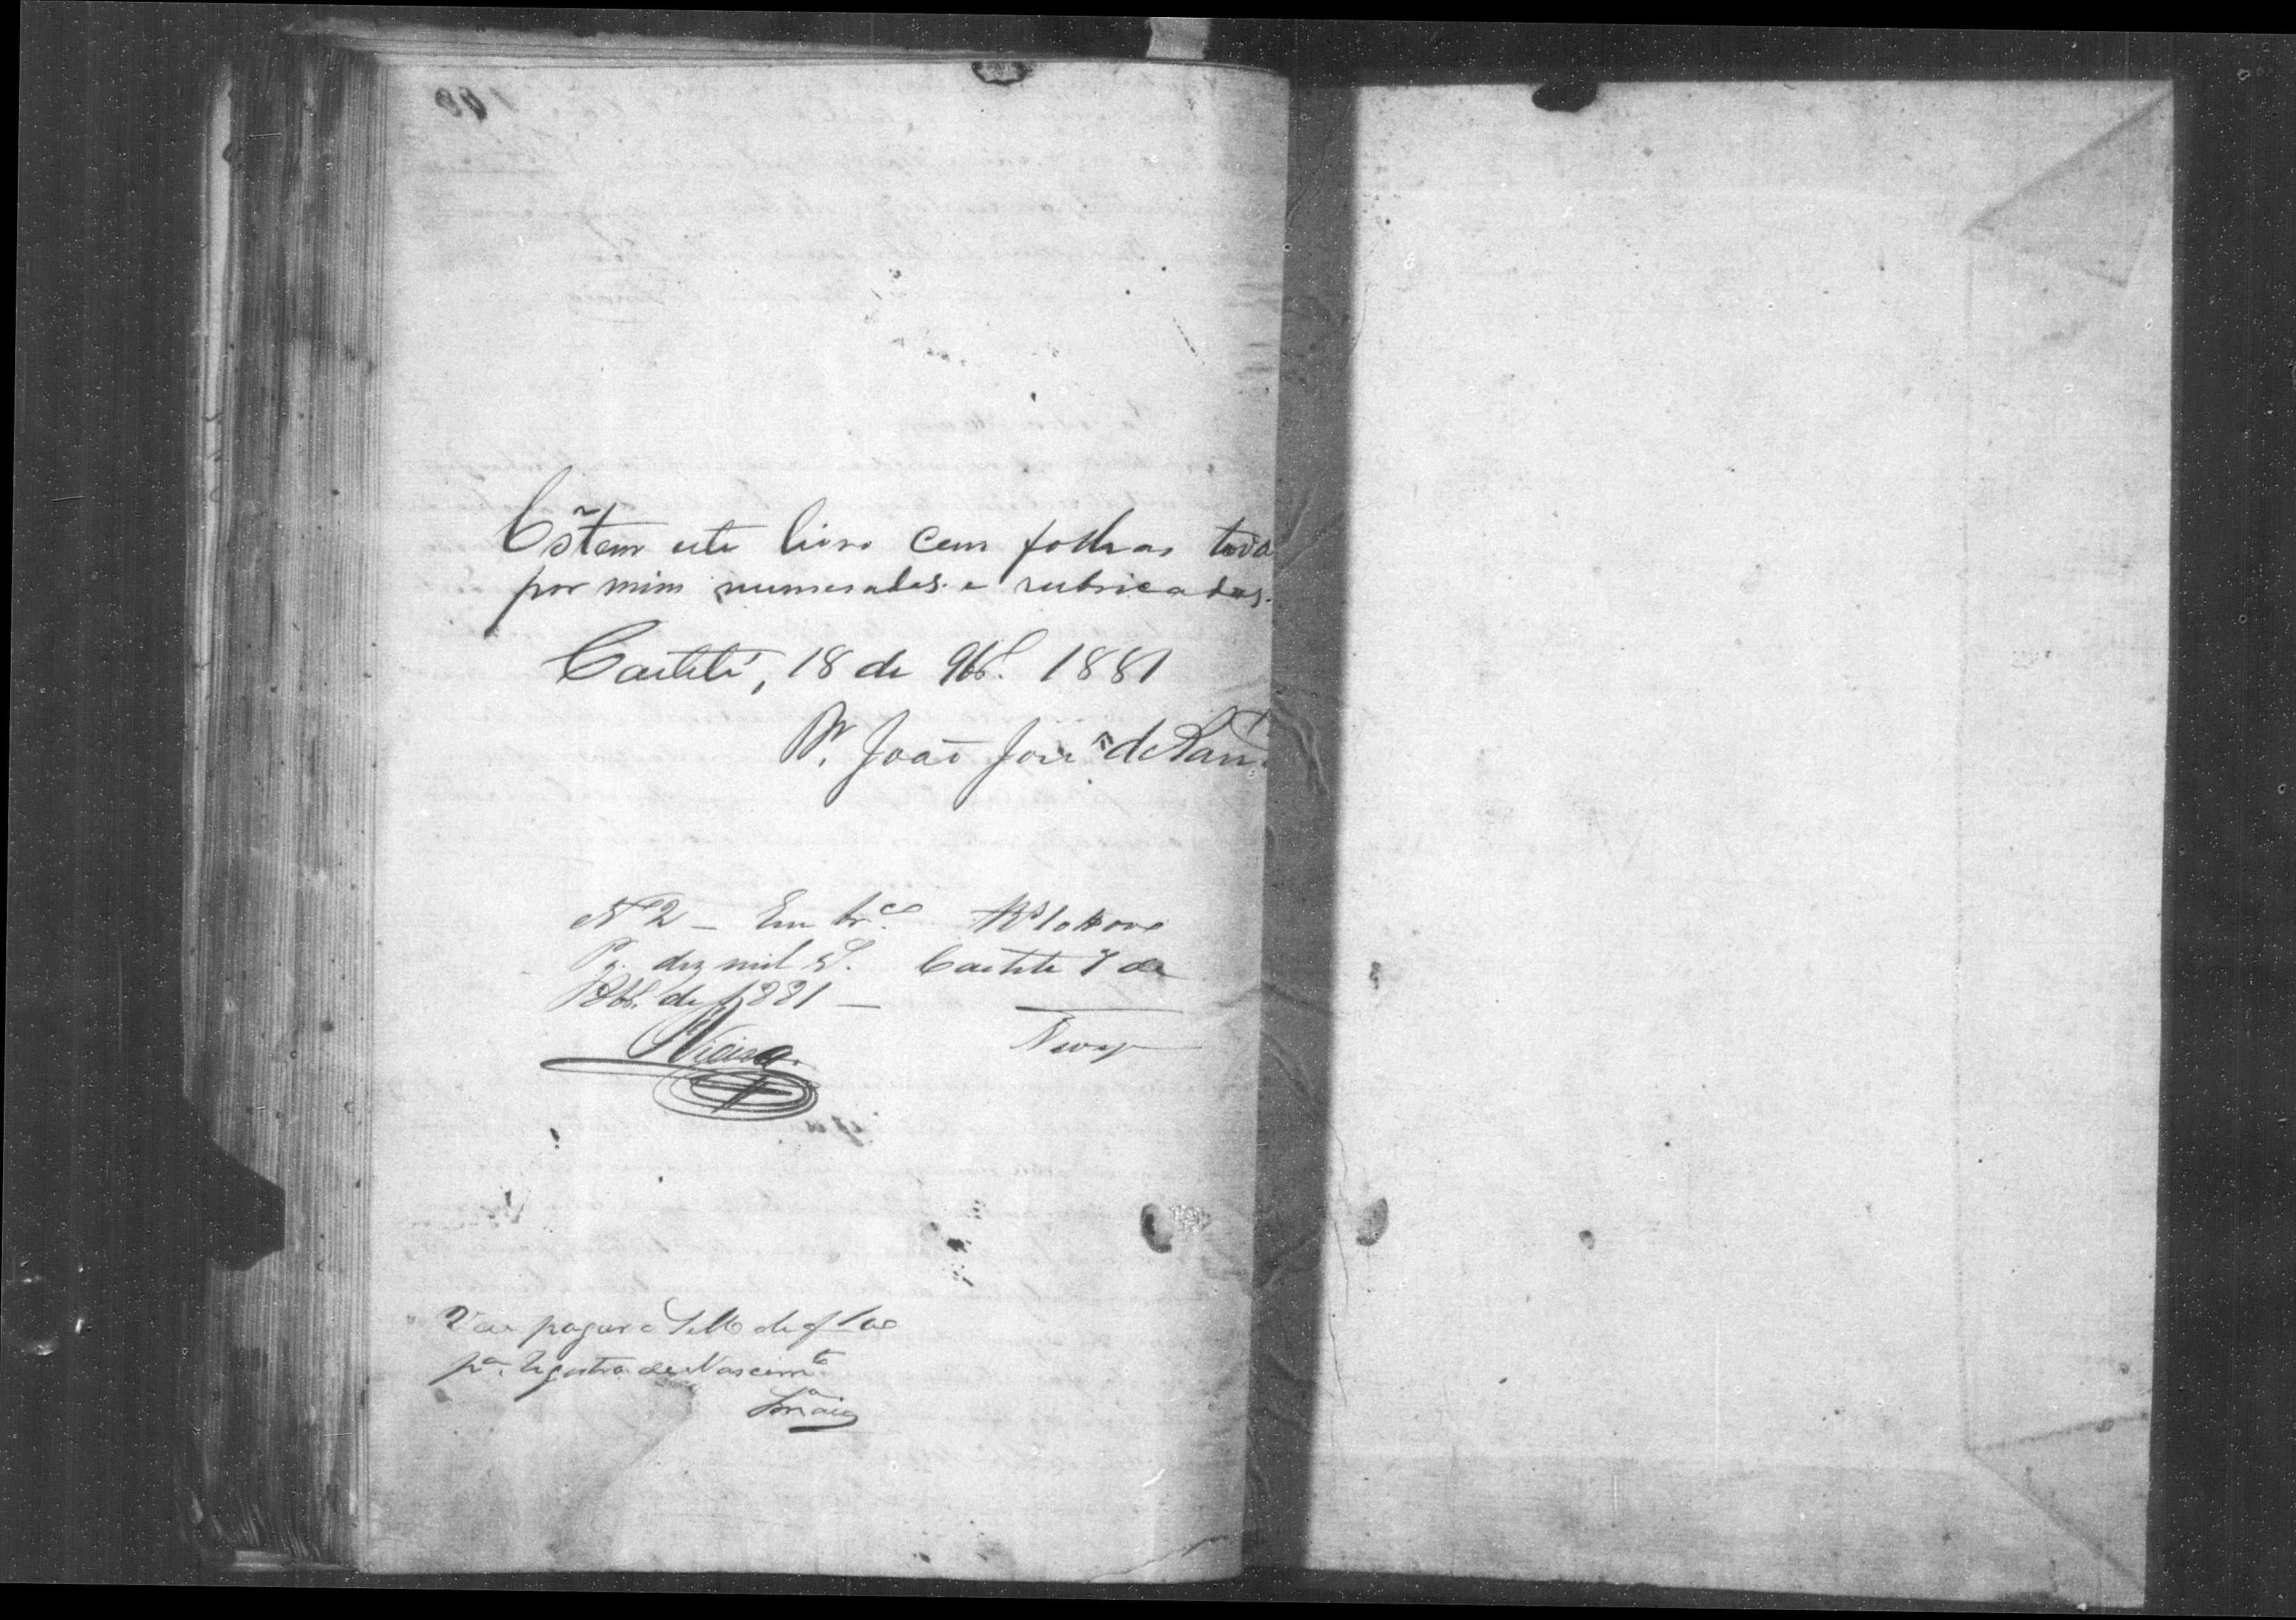 Cõtem este livro cem folhas toda
por mim numeradas e rubricadas.
Caetité, 18 de 9bro. 1881
Pe. João José de
Nº 2 — Rs 10$000
Pg. dez mil rs. Caetité 7 de
Xbro. de 1881 —
Vieira. Neves
Vae pagar o Sello de fl 100
pa. registro de Nascimto